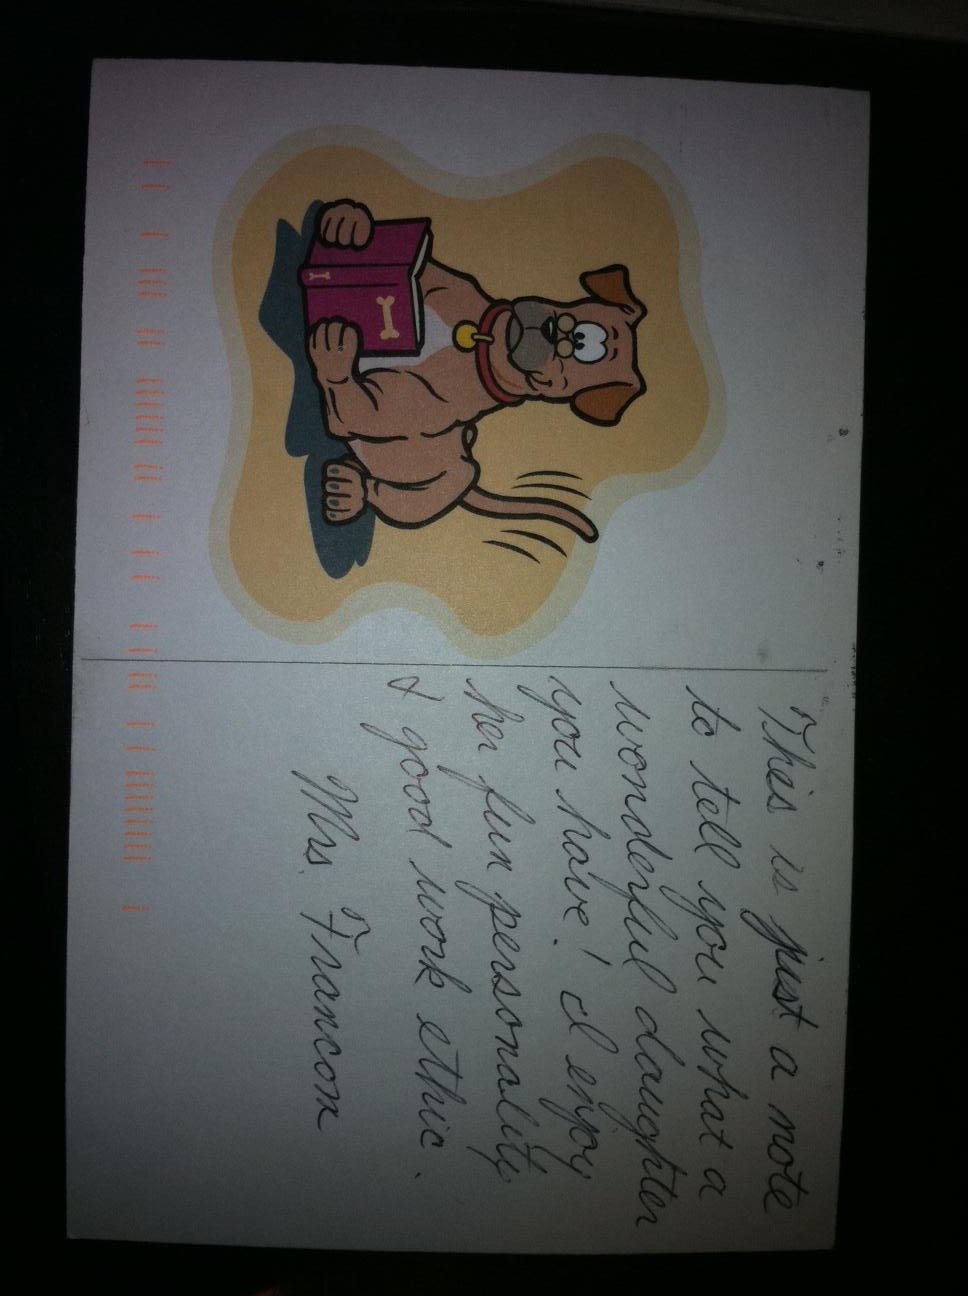 This is just a note
to tell you what a
wonderful daughter
you have! I enjoy
her fun personality
& good work ethic.
Mrs. Francom